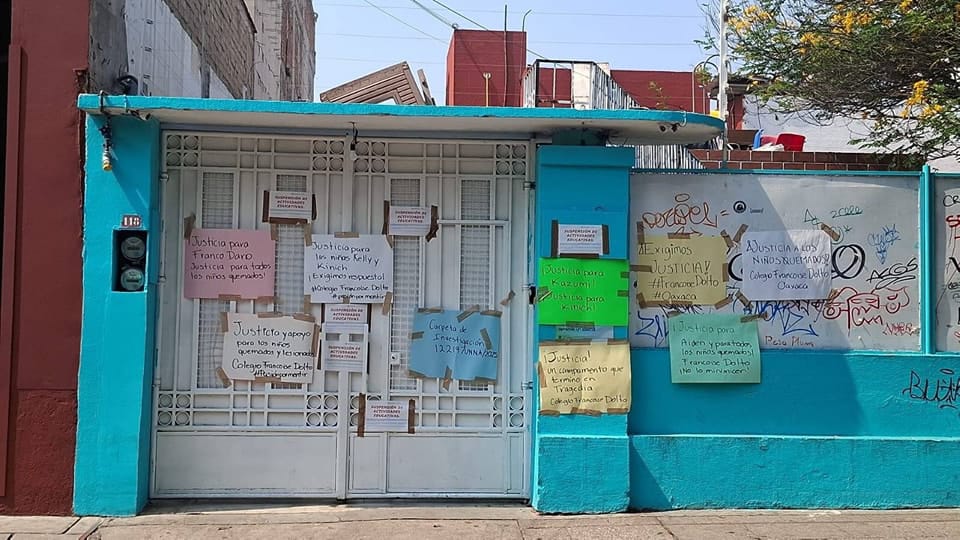 118
SUSPENSIÓN DE
ACTIVIDADES
EDUCATIVAS.
SUSPENSIÓN DE
ACTIVIDADES
EDUCATIVAS.
Justicia para
Franco Dano
Justicia para todos
los niños quemados!
¡Justicia para
los niños Kelly y
Kinich
¡Exigimos respuesta!
#Colegio Francoise Dolto
Justicia y apoyo
para los niños
quemados y lesionados
Colegio Francoise Dolto
SUSPENSIÓN DE
ACTIVIDADES
EDUCATIVAS.
SUSPENSIÓN DE
ACTIVIDADES
EDUCATIVAS.
Carpeta de
Investigación
SUSPENSIÓN DE
ACTIVIDADES
EDUCATIVAS.
SUSPENSIÓN DE
ACTIVIDADES
EDUCATIVAS.
¡Justicia para
Kazumi!
¡Justicia para
Kinich!
¡Justicia!
un campamento que
termino en
Tragedia
Colegio Francoise Dolto
¡Exigimos
JUSTICIA!
#Francoise Dolto
#Oaxaca
¡JUSTICIA A LOS
NIÑOS QUEMADOS!
Colegio Francoise Dolto
Oaxaca
¡Justicia para
Aiden y para todos
los niños quemados!
Francoise Dolto
¡No lo minimicen!